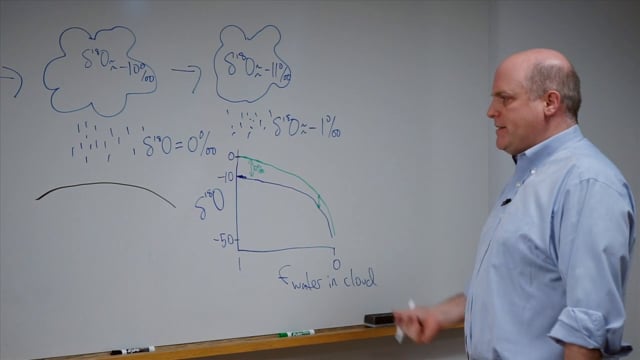 δ¹⁸O ≈ -10‰
δ¹⁸O ≈ -11‰
δ¹⁸O = 0‰
δ¹⁸O ≈ -1‰
0
-10
-50
δ¹⁸O
10‰
1
0
f water in cloud